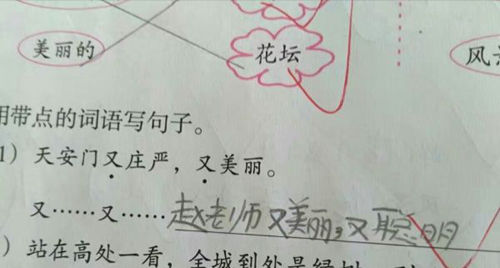 美丽的
花坛
风
用带点的词语写句子。
1）天安门又庄严，又美丽。
又……又……赵老师又美丽，又聪明
）站在高处一看，全城到处是绿